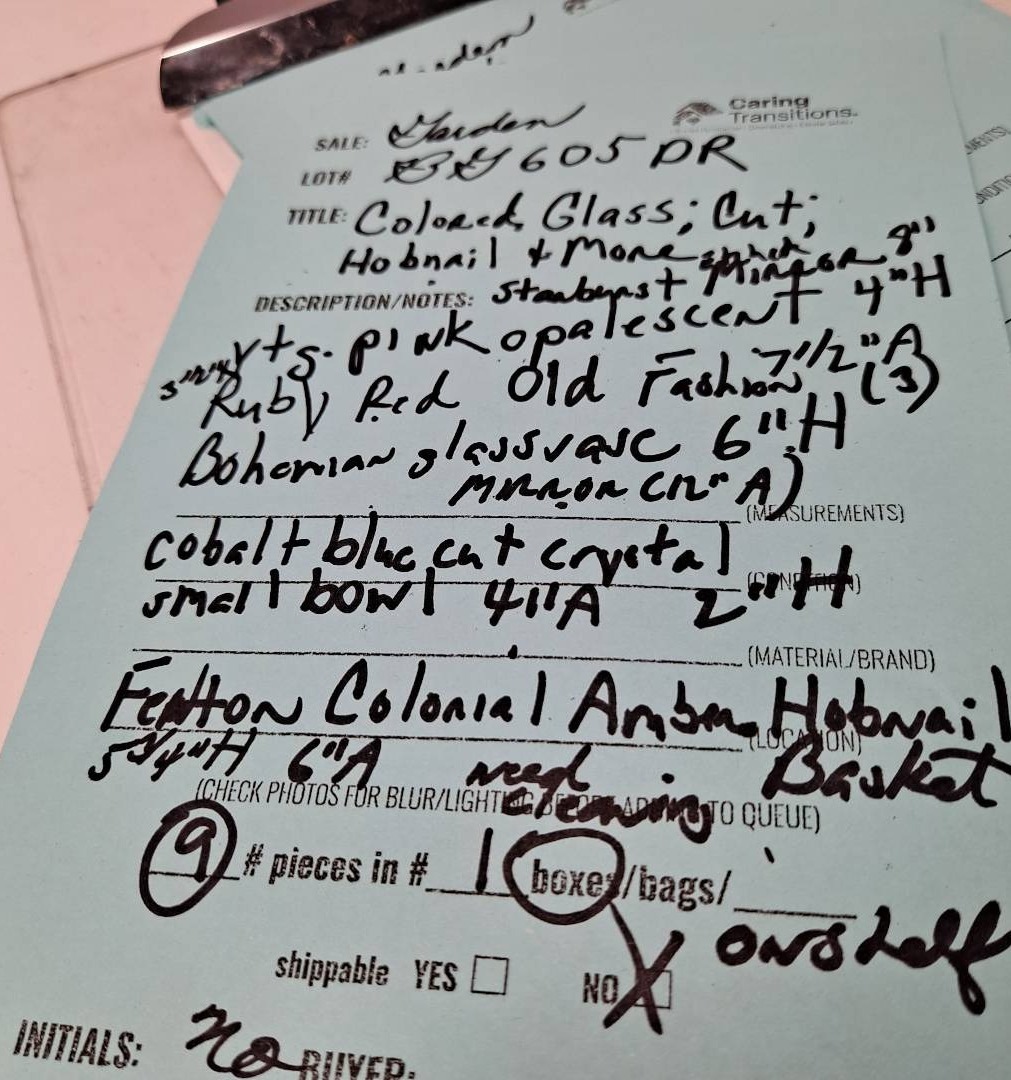 Caring
Transitions.
SALE: Garden
LOT# 605 DR
TITLE: Colored Glass; Cut;
Hobnail & More
DESCRIPTION/NOTES: Starburst mirror 8"
pink opalescent 4"H
Ruby Red Old Fashion 7 1/2"A (3)
Bohemian glass vase 6"H
mirror (12" A)
(MEASUREMENTS)
cobalt blue cut crystal
(CONDITION)
small bowl 4"A 2"H
(MATERIAL/BRAND)
Fenton Colonial Amber Hobnail
(LOCATION)
5 3/4"H 6"A need cleaning Basket
(CHECK PHOTOS FOR BLUR/LIGHTING BEFORE ADDING TO QUEUE)
9 # pieces in # 1 boxes/bags/
on shelf
shippable YES NO X
INITIALS: BUYER: